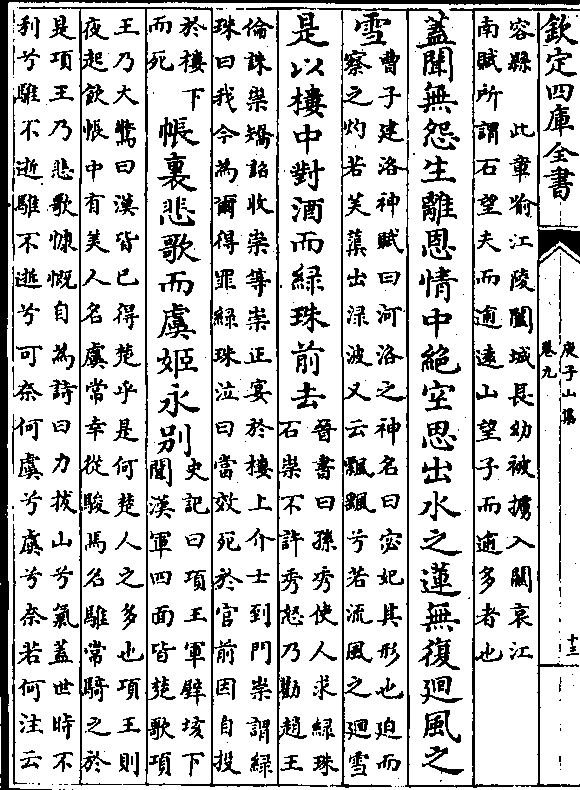 欽定四庫全書
庾子山集
卷九
十三
容縣　此章喻江陵闔城長幼被擄入關哀江
南賦所謂石望夫而逾遠山望子而逾多者也
蓋聞無怨生離恩情中絶空思出水之蓮無復廻風之
雪
曹子建洛神賦曰河洛之神名曰宓妃其形也迫而
察之灼若芙蕖出渌波又云飄飄兮若流風之廻雪
是以樓中對酒而緑珠前去
晉書曰孫秀使人求緑珠
石崇不許秀怒乃勸趙王
倫誅崇矯詔收崇等崇正宴於樓上介士到門崇謂緑
珠曰我今為爾得罪緑珠泣曰當效死於官前因自投
於樓下
而死
帳裏悲歌而虞姬永别
史記曰項王軍壁垓下
聞漢軍四面皆楚歌項
王乃大驚曰漢皆已得楚乎是何楚人之多也項王則
夜起飲帳中有美人名虞常幸從駿馬名騅常騎之於
是項王乃悲歌慷慨自為詩曰力拔山兮氣葢世時不
利兮騅不逝騅不逝兮可奈何虞兮虞兮奈若何注云